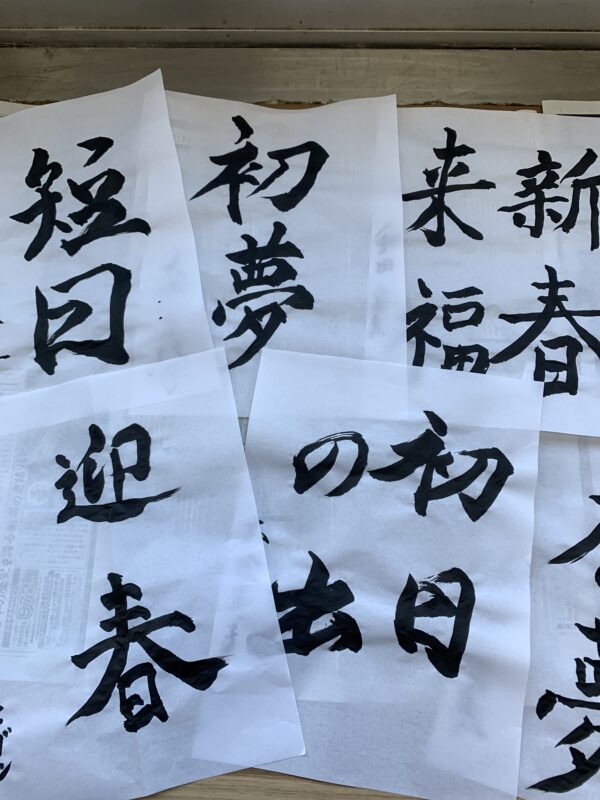 短日
初夢
新春
来福
迎春
初日
の出
夢